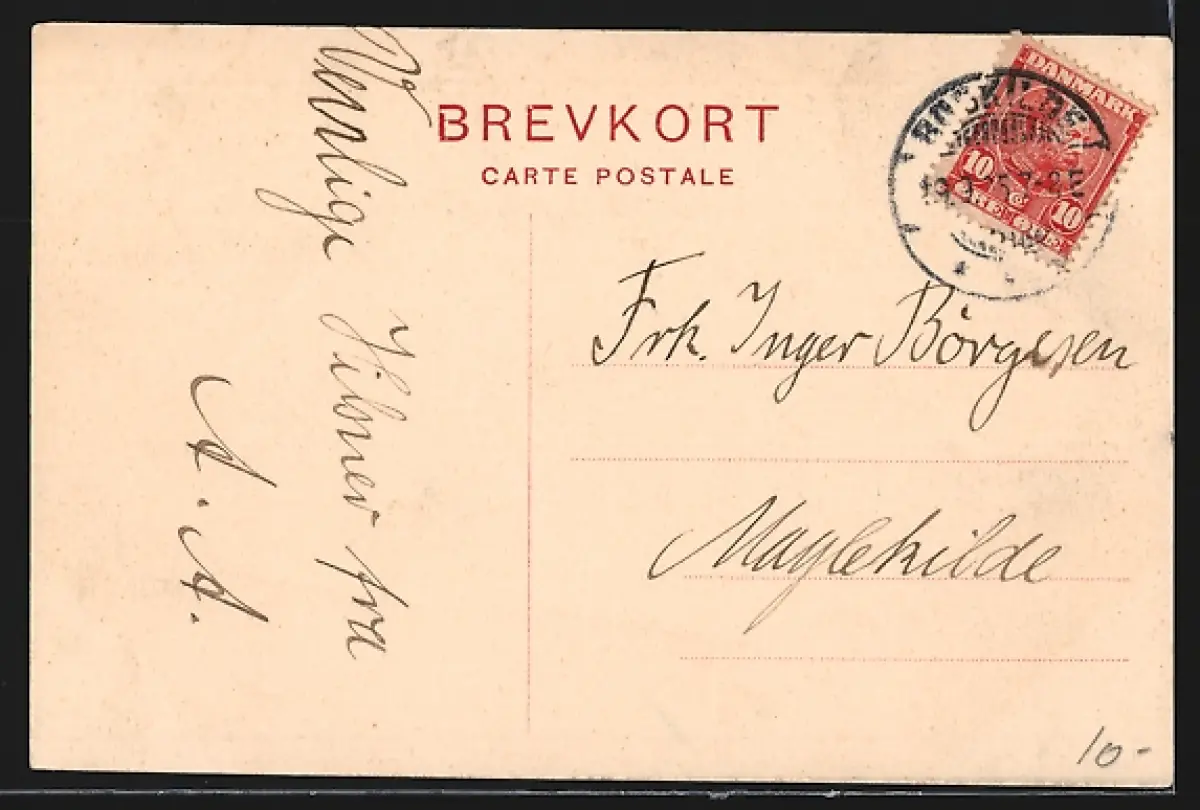 Venlige Hilsner fra
A. A.
BREVKORT
CARTE POSTALE
DANMARK
10 10
ROSKILDE
7-8 E
Frk. Inger Börgesen
Maglekilde
10-